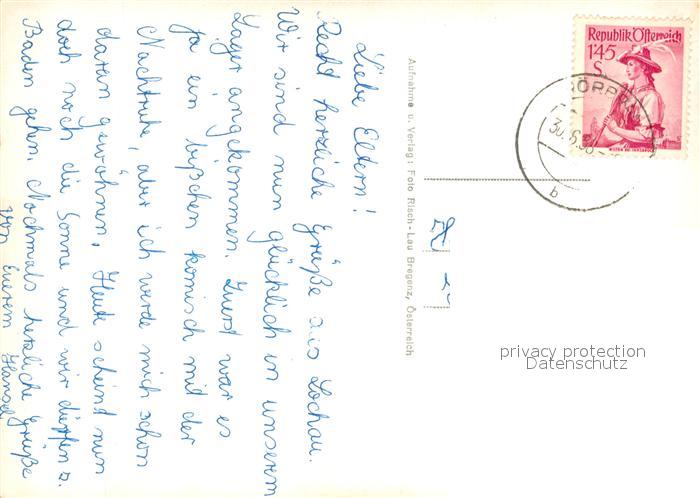 Liebe Eltern!
Recht herzliche Grüße aus Lochau.
Wir sind nun glücklich in unserem
Lager angekommen. Zuerst war es
ja ein bißchen komisch mit der
Nachtruhe, aber ich werde mich schon
daran gewöhnen. Heute scheint nun
doch noch die Sonne und wir dürfen z.
Baden gehen. Nochmals herzliche Grüße
von Eurem Hansel
Aufnahme u. Verlag: Foto Risch-Lau Bregenz, Österreich
Republik Österreich
1'45
S
30.6.58
b
privacy protection
Datenschutz